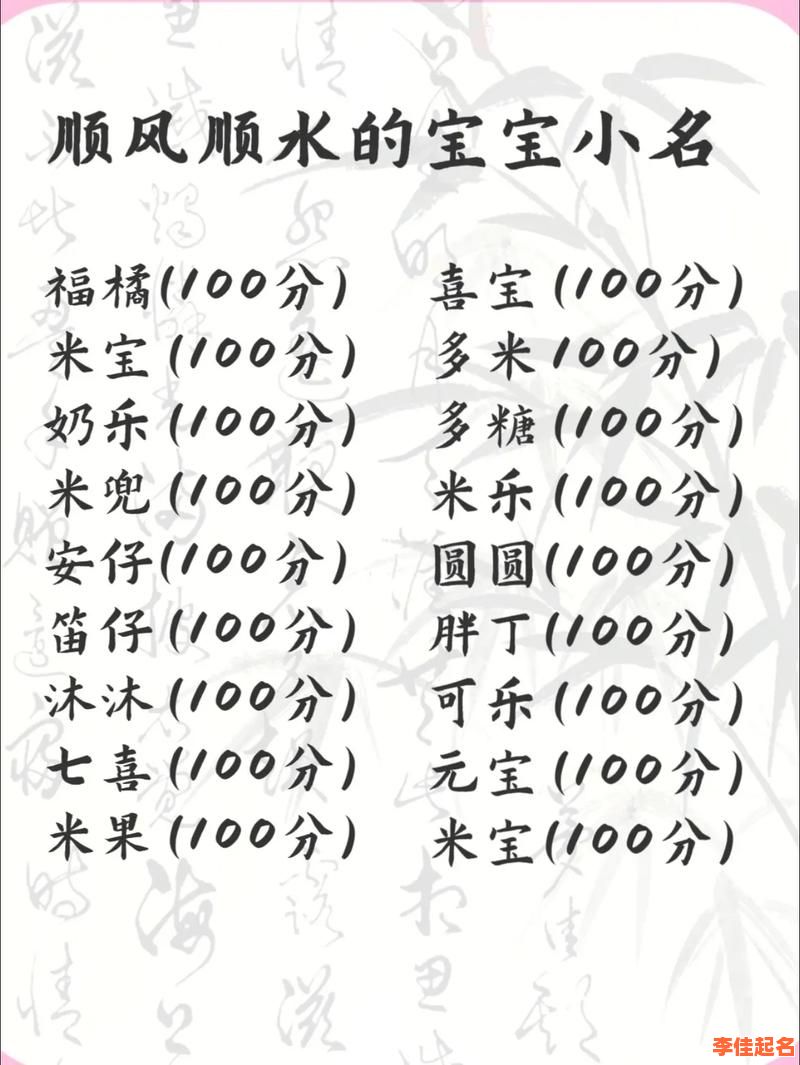 顺风顺水的宝宝小名
福橘(100分) 喜宝(100分)
米宝(100分) 多米100分)
奶乐(100分) 多糖(100分)
米兜(100分) 米乐(100分)
安仔(100分) 圆圆(100分)
笛仔(100分) 胖丁(100分)
沐沐(100分) 可乐(100分)
七喜(100分) 元宝(100分)
米果(100分) 米宝(100分)
李佳起名